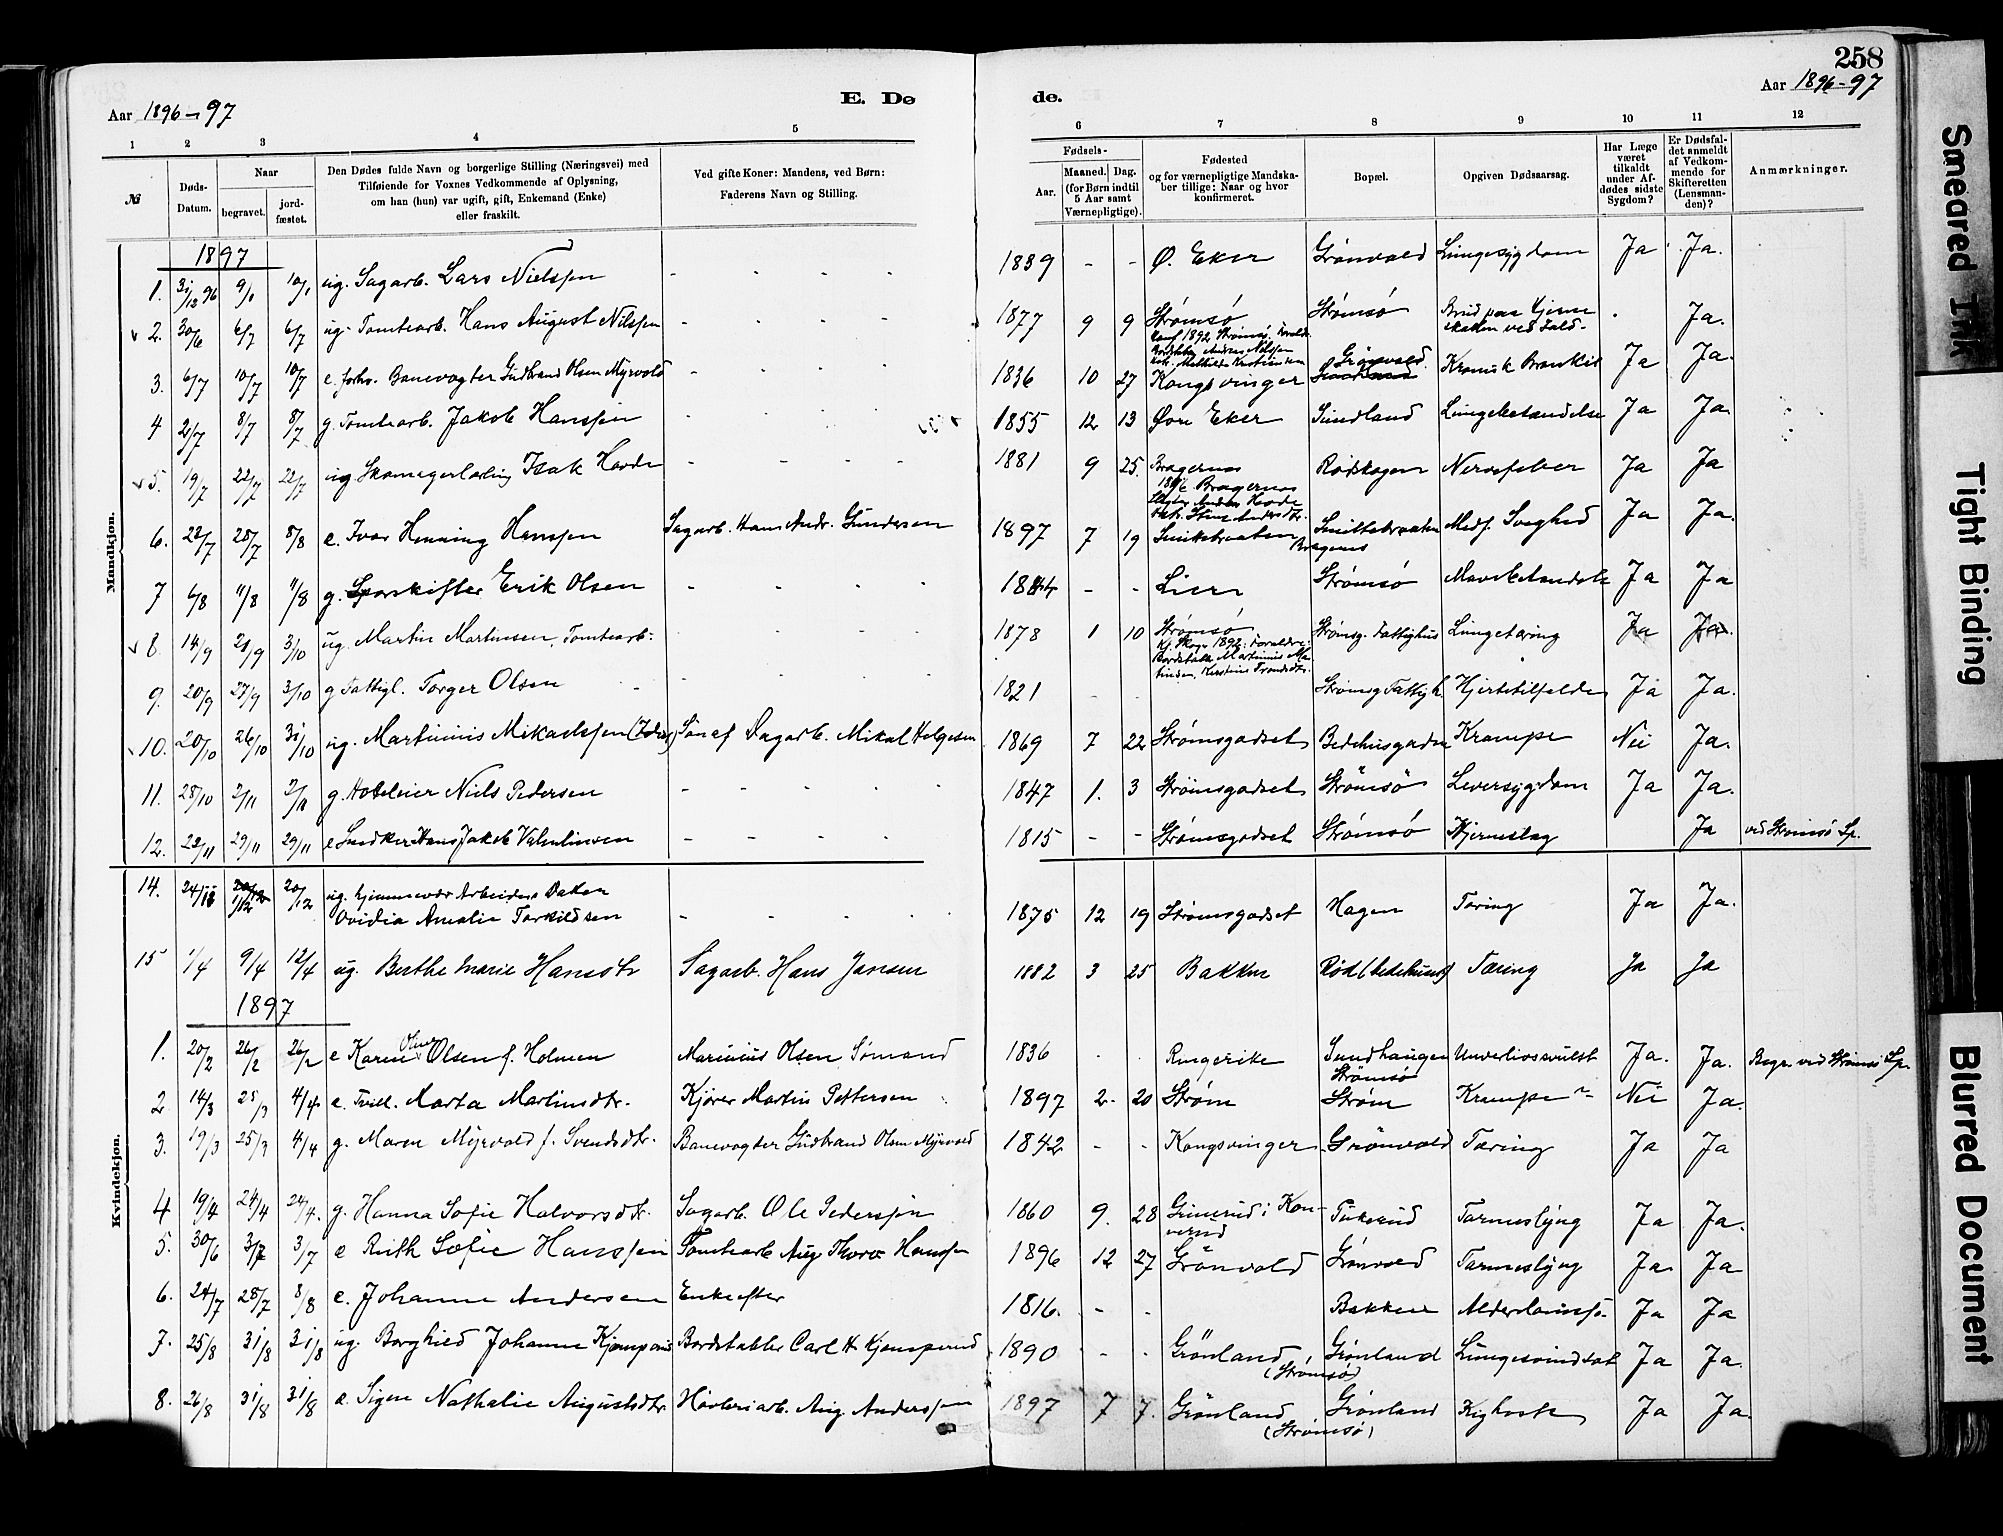 258
Aar 1896-97
E. Dø
de.
Aar 1896-97
1 2 3 4 5 6 7 8 9 10 11 12
№
Døds-Datum.
Naar
begravet.
jordfæstet.
Den Dødes fulde Navn og borgerlige Stilling (Næringsvei) med
Tilføiende for Voxnes Vedkommende af Oplysning,
om han (hun) var ugift, gift, Enkemand (Enke)
eller fraskilt.
Ved gifte Koner: Mandens, ved Børn:
Faderens Navn og Stilling.
Fødsels-
Aar.
Maaned.
Dag.
(for Børn indtil
5 Aar samt
Værnepligtige).
Fødested
og for værnepligtige Mandska-
ber tillige: Naar og hvor
konfirmeret.
Bopæl.
Opgiven Dødsaarsag.
Har Læge
været
tilkaldt
under Af-
dødes sidste
Sygdom?
Er Dødsfal-
det anmeldt
af Vedkom-
mende for
Skifteretten
(Lensman-
den)?
Anmærkninger.
Mandkjøn.
1897
1. 31/12 96 9/1 10/1 ug. Sagarb. Lars Nielsen - - - - 1839 - - Ø. Eker Grønvold Lungesygdom Ja Ja.
2. 30/6 6/7 6/7 ug. Tomtearb. Hans August Nilssen - - - - 1877 9 9 Strømsø Strømsø Brud paa Hjerneskallen ved Fald - Ja.
Konf 1892 Strømsø
3. 6/7 10/7 10/7 e. forhv. Banevogter Gudbrand Olsen Myrvold - - - - 1836 10 27 Kongsvinger Grønvold Kronisk Bronkit Ja Ja.
4 2/7 8/7 8/7 g. Tomtearb. Jakob Hanssen - - - - 1855 12 13 Øvre Eker Sundland Lungebetændelse Ja Ja.
5. 19/7 22/7 22/7 ug. Skomagerlærling Isak Hovde - - - - 1881 9 25. Bragernes Rødskogen Nervefeber Ja Ja
1896 Bragernes
6. 22/7 28/7 8/8 e. Ivar Henning Hanssen Sagarb. Hans Andr. Gundersen 1897 7 19 Bragernes Medf. Svaghed Ja Ja.
7 6/8 11/8 11/8 g. Sporskifter Erik Olsen - - - - 1844 - - Lier Strømsø Ja Ja
8. 14/9 21/9 3/10 ug. Martin Martinsen, Tomtearb. - - - - 1878 1 10 Strømsø Strømsg. Fattighus Lungetæring Ja Ja.
9. 20/9 27/9 3/10 g Fattigl. Torger Olsen - - - - 1821 - - Strømsg Fattigh. Hjertetilfelde Ja Ja.
10. 20/10 26/10 31/10 ug. Martinius Mikaelssen Søn af Dagarb. Mikal Helgesen 1869 7 22 Strømsgodset Bedehusgaden Krampe Nei Ja.
11. 28/10 2/11 2/11 g. Hoteleier Niels Pedersen - - - - 1847 1. 3 Strømsgodset Strømsø Leversygdom Ja Ja.
12. 23/11 29/11 29/11 e Snedker Hans Jakob Valentinsen - - - - 1815 - - Strømsgodset Strømsø Hjerneslag Ja ved Strømsø Sp.
Kvindekjøn.
14. 24/11 1/12 20/12 ug. hjemmevær. Arbeiders Datter
Ovidia Amalie Torkildsen - - - - 1875 12 19 Strømsgodset Hagen Tæring Ja Ja.
15 1/4 9/4 12/4 ug. Berthe Marie Hansdtr Sagarb. Hans Jensen 1882 3 25 Bakken Rød (bedehuset) Tæring Ja Ja
1897
1. 20/2 26/2 26/2 e Karen Oline Olsen f. Holmen Marinius Olsen Sømand 1836 - - Ringerike Sundhaugen Underlivssvulst Ja. Ja. Begr. ved Strømsø Sp.
Strømsø
2. 14/3 25/3 4/4 e. Tvill. Marta Martinsdtr. Kjører Martin Pettersen 1897 2. 20 Strøm Strøm Krampe Nei Ja.
3. 19/3 25/3 4/4 g. Maren Myrvold f. Svendsdtr. Banevogter Gudbrand Olsen Myrvold 1842 - - Kongsvinger Grønvold Tæring Ja Ja
4 19/4 24/4 24/4. g. Hanna Sofie Halvorsdtr. Sagarb. Ole Pederssen 1860 9. 28 Tukerud Tarmeslyng Ja Ja.
5. 30/6 3/7 3/7 e Ruth Sofie Hanssen Tomtearb Aug Thorv Hanssen 1896 12 27 Grønvold Grønvold Tarmeslyng Ja Ja
6. 24/7 28/7 8/8 e. Johanne Andersen Enke efter 1816. - - Bakken Alderdomss. Ja Ja
7. 25/8 31/8 31/8 ug. Borghild Johanne Kjemperud Bordstabler Carl H. Kjemperud 1890 - - Grønland Grønland Lungesvindsot Ja Ja.
(Strømsø)
8. 26/8 31/8 31/8 e. Signe Nathalie Augustsdtr Høvleriarb. Aug Anderssen 1897 7 7. Grønland Grønland Kighoste Ja Ja.
(Strømsø)
Smeared Ink
Tight Binding
Blurred Document